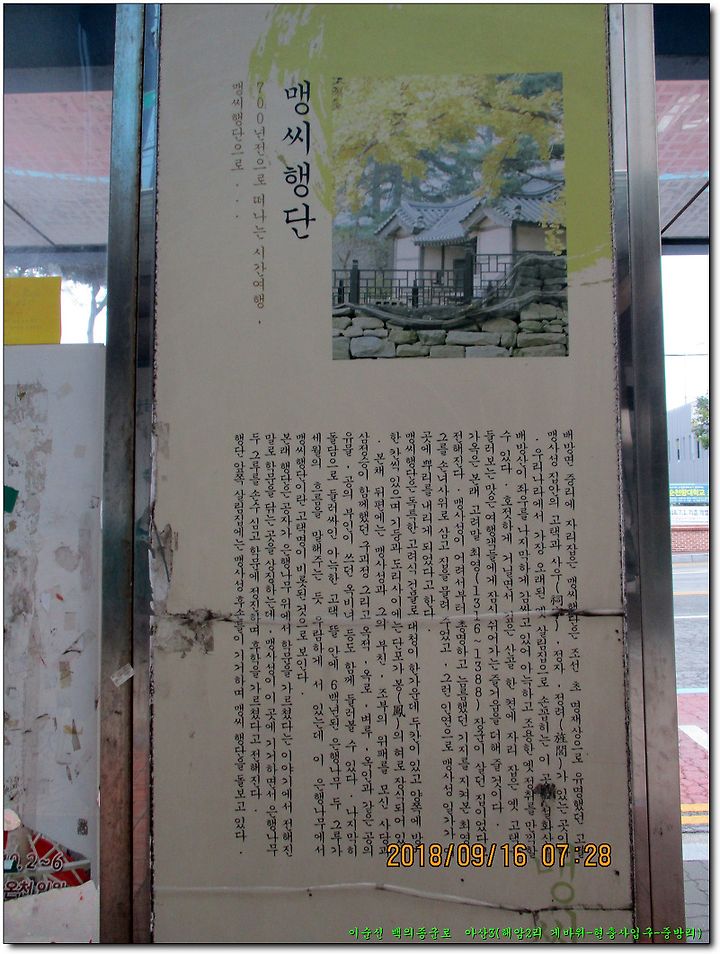 맹씨행단
700년전으로 떠나는 시간여행,
맹씨행단으로...
배방면 중리에 자리잡은 맹씨행단은 조선 초 명재상으로 유명했던 고불
맹사성 집안의 고택과 사우(祠宇), 정자, 정려(旌閭)가 있는 곳으
. 우리나라에서 가장 오래된 옛 살림집으로 손꼽히는 이 곳은
배방산이 좌우를 나지막하게 감싸고 있어 아늑하고 조용한 옛 정취를 만끽할
수 있다. 호젓하게 거닐면서 깊은 산골 한 켠에 자리 잡은 옛 고택
둘러보는 맛은 여행객들에게 잠시나마 쉬어가는 즐거움을 더해 줄 것이다.
가옥은 본래 고려말 최영(1316-1388) 장군이 살던 집이었다
전해진다. 맹사성이 어려서부터 총명하고 늠름했던 기지를 지켜본 최영
그를 손녀사위로 삼고 집을 물려 주었고, 그런 인연으로 맹사성 일가가
곳에 뿌리를 내리게 되었다고 한다.
맹씨행단은 독특한 고려식 건물로 대청이 한가운데 두칸이 있고 양쪽에 방
한 칸씩 있으며 기둥과 도리 사이에는 봉(鳳)의 혀로 장식되어 있다
. 본채 뒤편에는 맹사성과 그의 부친, 조부의 위패를 모신 사당과
삼정승이 함께했던 구괴정 그리고 옥석, 옥로, 벼루, 옥인과 같은 공의
유물, 공의 부인이 쓰던 옥비녀 등도 함께 둘러볼 수 있다. 나지막한
돌담으로 둘러싸인 아늑한 고택 뜰 안에 6백년된 은행나무 두 그루가
세월의 흐름을 말해주는 듯 우람하게 서 있는데 이 은행나무에서
맹씨행단이란 고택명이 비롯된 것으로 보인다.
본래 행단은 공자가 은행나무 위에서 학문을 가르쳤다는 이야기에서 전해진
말로 학문을 닦는 곳을 상징하는데, 맹사성의 이 곳에 기거하면서 은행나무
두 그루를 손수 심고 학문에 정진하며 후학을 가르쳤다고 전해진다.
행단 앞쪽 살림집에는 맹사성 후손들이 기거하며 맹씨 행단을 돌보고 있다.
2~6
2018/09/16 07:28
이순신 백의종군로 아산3(해암2리 게바위-현충사입구-중방리)